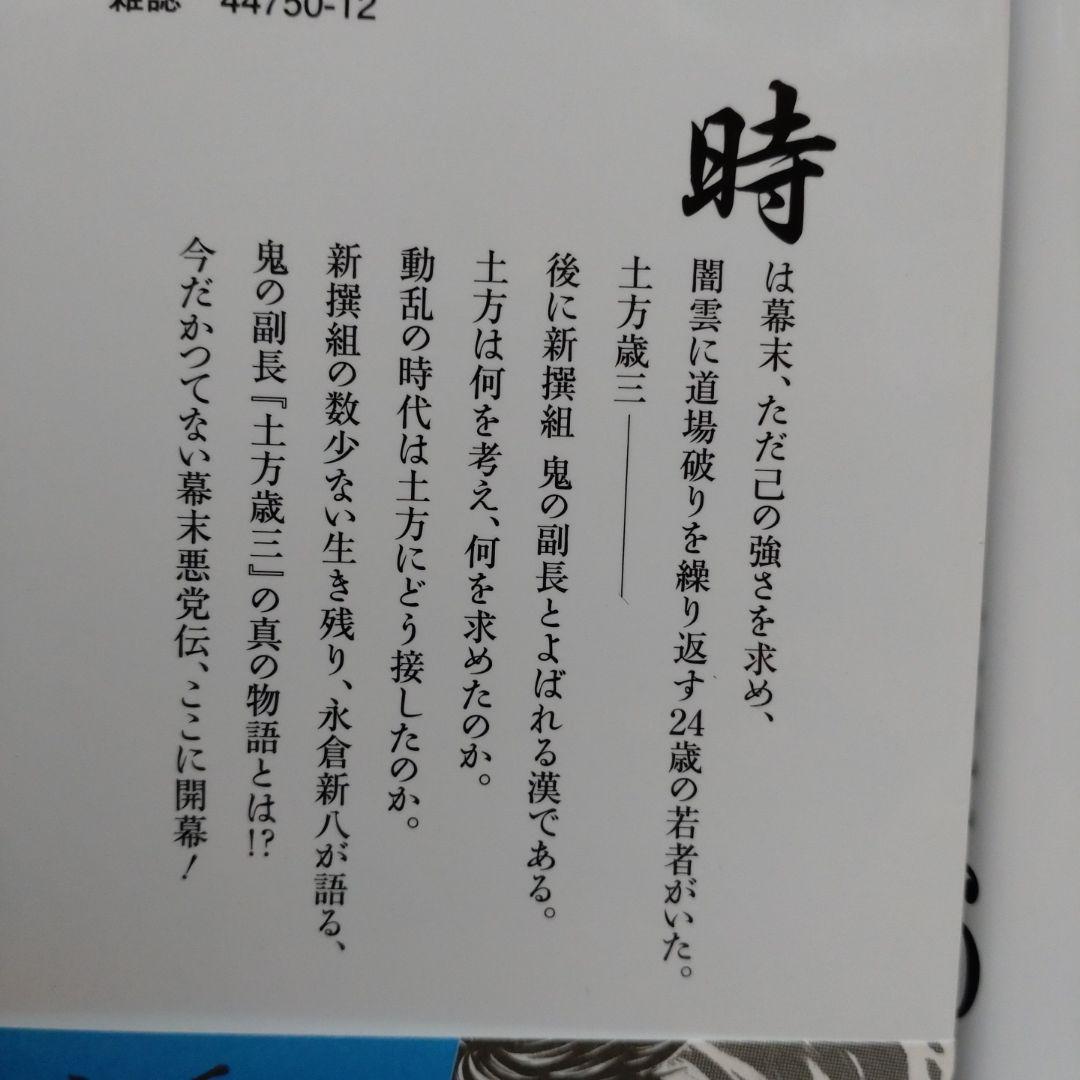 雑誌 44750-12
時は幕末、ただ己の強さを求め、
闇雲に道場破りを繰り返す24歳の若者がいた。
土方歳三――
後に新撰組 鬼の副長とよばれる漢である。
土方は何を考え、何を求めたのか。
動乱の時代は土方にどう接したのか。
新撰組の数少ない生き残り、永倉新八が語る、
鬼の副長『土方歳三』の真の物語とは!?
今だかつてない幕末悪党伝、ここに開幕！